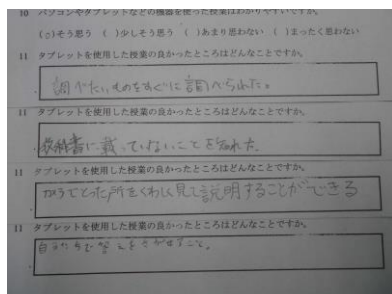 10 パソコンやタブレットなどの機器を使った授業はわかりやすいですか。
(○)そう思う ( )少しそう思う ( )あまり思わない ( )まったく思わない
11 タブレットを使用した授業の良かったところはどんなことですか。
調べたいものをすぐに調べられた。
11 タブレットを使用した授業の良かったところはどんなことですか。
教科書に載っていないことを知れた。
11 タブレットを使用した授業の良かったところはどんなことですか。
カメラでとった所をくわしく見て説明することができる
11 タブレットを使用した授業の良かったところはどんなことですか。
自分たちで答えをさがせること。